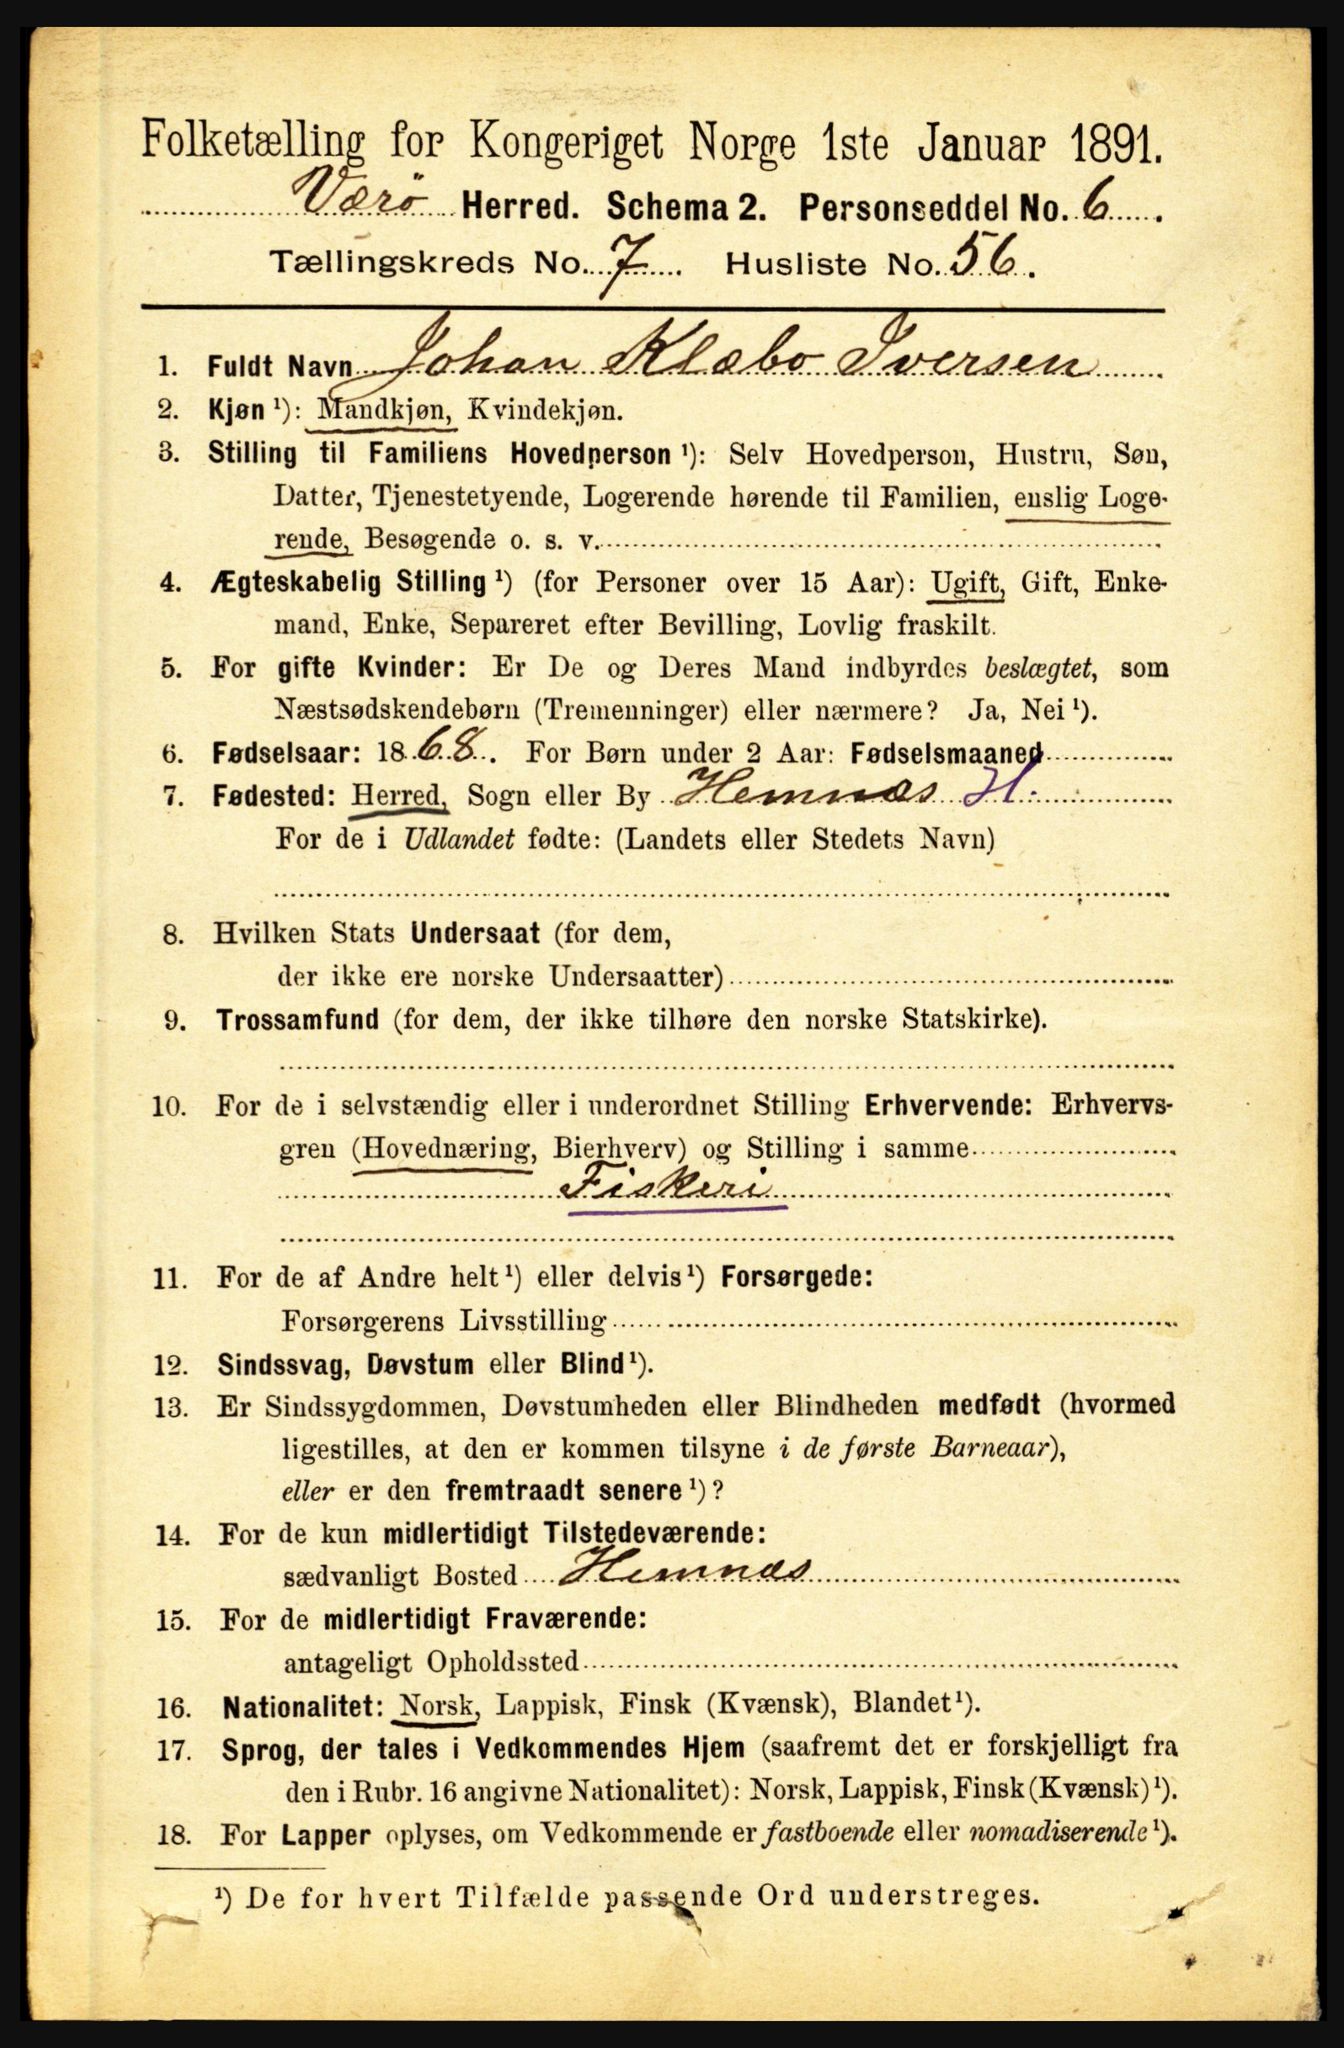 Folketælling for Kongeriget Norge 1ste Januar 1891.
Værö Herred. Schema 2. Personseddel No. 6.
Tællingskreds No. 7 Husliste No. 56.
1. Fuldt Navn Johan Klæbo Iversen
2. Kjøn ¹): Mandkjøn, Kvindekjøn.
3. Stilling til Familiens Hovedperson ¹): Selv Hovedperson, Hustru, Søn,
Datter, Tjenestetyende, Logerende hørende til Familien, enslig Loge-
rende, Besøgende o. s. v.
4. Ægteskabelig Stilling ¹) (for Personer over 15 Aar): Ugift, Gift, Enke-
mand, Enke, Separeret efter Bevilling, Lovlig fraskilt.
5. For gifte Kvinder: Er De og Deres Mand indbyrdes beslægtet, som
Næstsødskendebørn (Tremenninger) eller nærmere? Ja, Nei ¹).
6. Fødselsaar: 1868. For Børn under 2 Aar: Fødselsmaaned
7. Fødested: Herred, Sogn eller By Hemnæs H.
For de i Udlandet fødte: (Landets eller Stedets Navn)
8. Hvilken Stats Undersaat (for dem,
der ikke ere norske Undersaatter)
9. Trossamfund (for dem, der ikke tilhøre den norske Statskirke).
10. For de i selvstændig eller i underordnet Stilling Erhvervende: Erhvervs-
gren (Hovednæring, Bierhverv) og Stilling i samme
Fiskeri
11. For de af Andre helt ¹) eller delvis ¹) Forsørgede:
Forsørgerens Livsstilling
12. Sindssvag, Døvstum eller Blind ¹).
13. Er Sindssygdommen, Døvstumheden eller Blindheden medfødt (hvormed
ligestilles, at den er kommen tilsyne i de første Barneaar),
eller er den fremtraadt senere ¹)?
14. For de kun midlertidigt Tilstedeværende:
sædvanligt Bosted Hemnæs
15. For de midlertidigt Fraværende:
antageligt Opholdssted
16. Nationalitet: Norsk, Lappisk, Finsk (Kvænsk), Blandet ¹).
17. Sprog, der tales i Vedkommendes Hjem (saafremt det er forskjelligt fra
den i Rubr. 16 angivne Nationalitet): Norsk, Lappisk, Finsk (Kvænsk) ¹).
18. For Lapper oplyses, om Vedkommende er fastboende eller nomadiserende ¹).
¹) De for hvert Tilfælde passende Ord understreges.